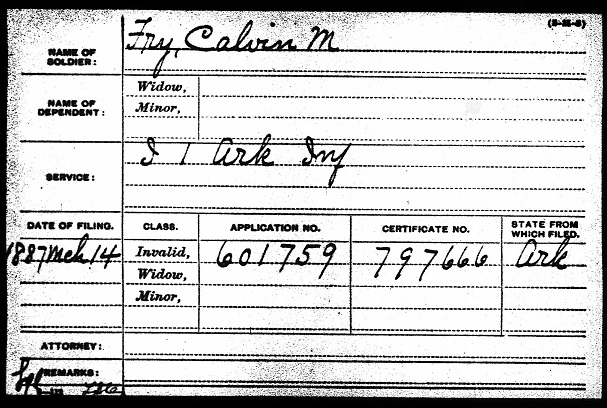 (3-M-8)
NAME OF SOLDIER:
Fry, Calvin M
NAME OF DEPENDENT:
Widow,
Minor,
SERVICE:
I 1 Ark Inf
DATE OF FILING. CLASS. APPLICATION NO. CERTIFICATE NO. STATE FROM WHICH FILED.
1887 Mch 14 Invalid, 601759 797666 Ark
Widow,
Minor,
ATTORNEY:
REMARKS: